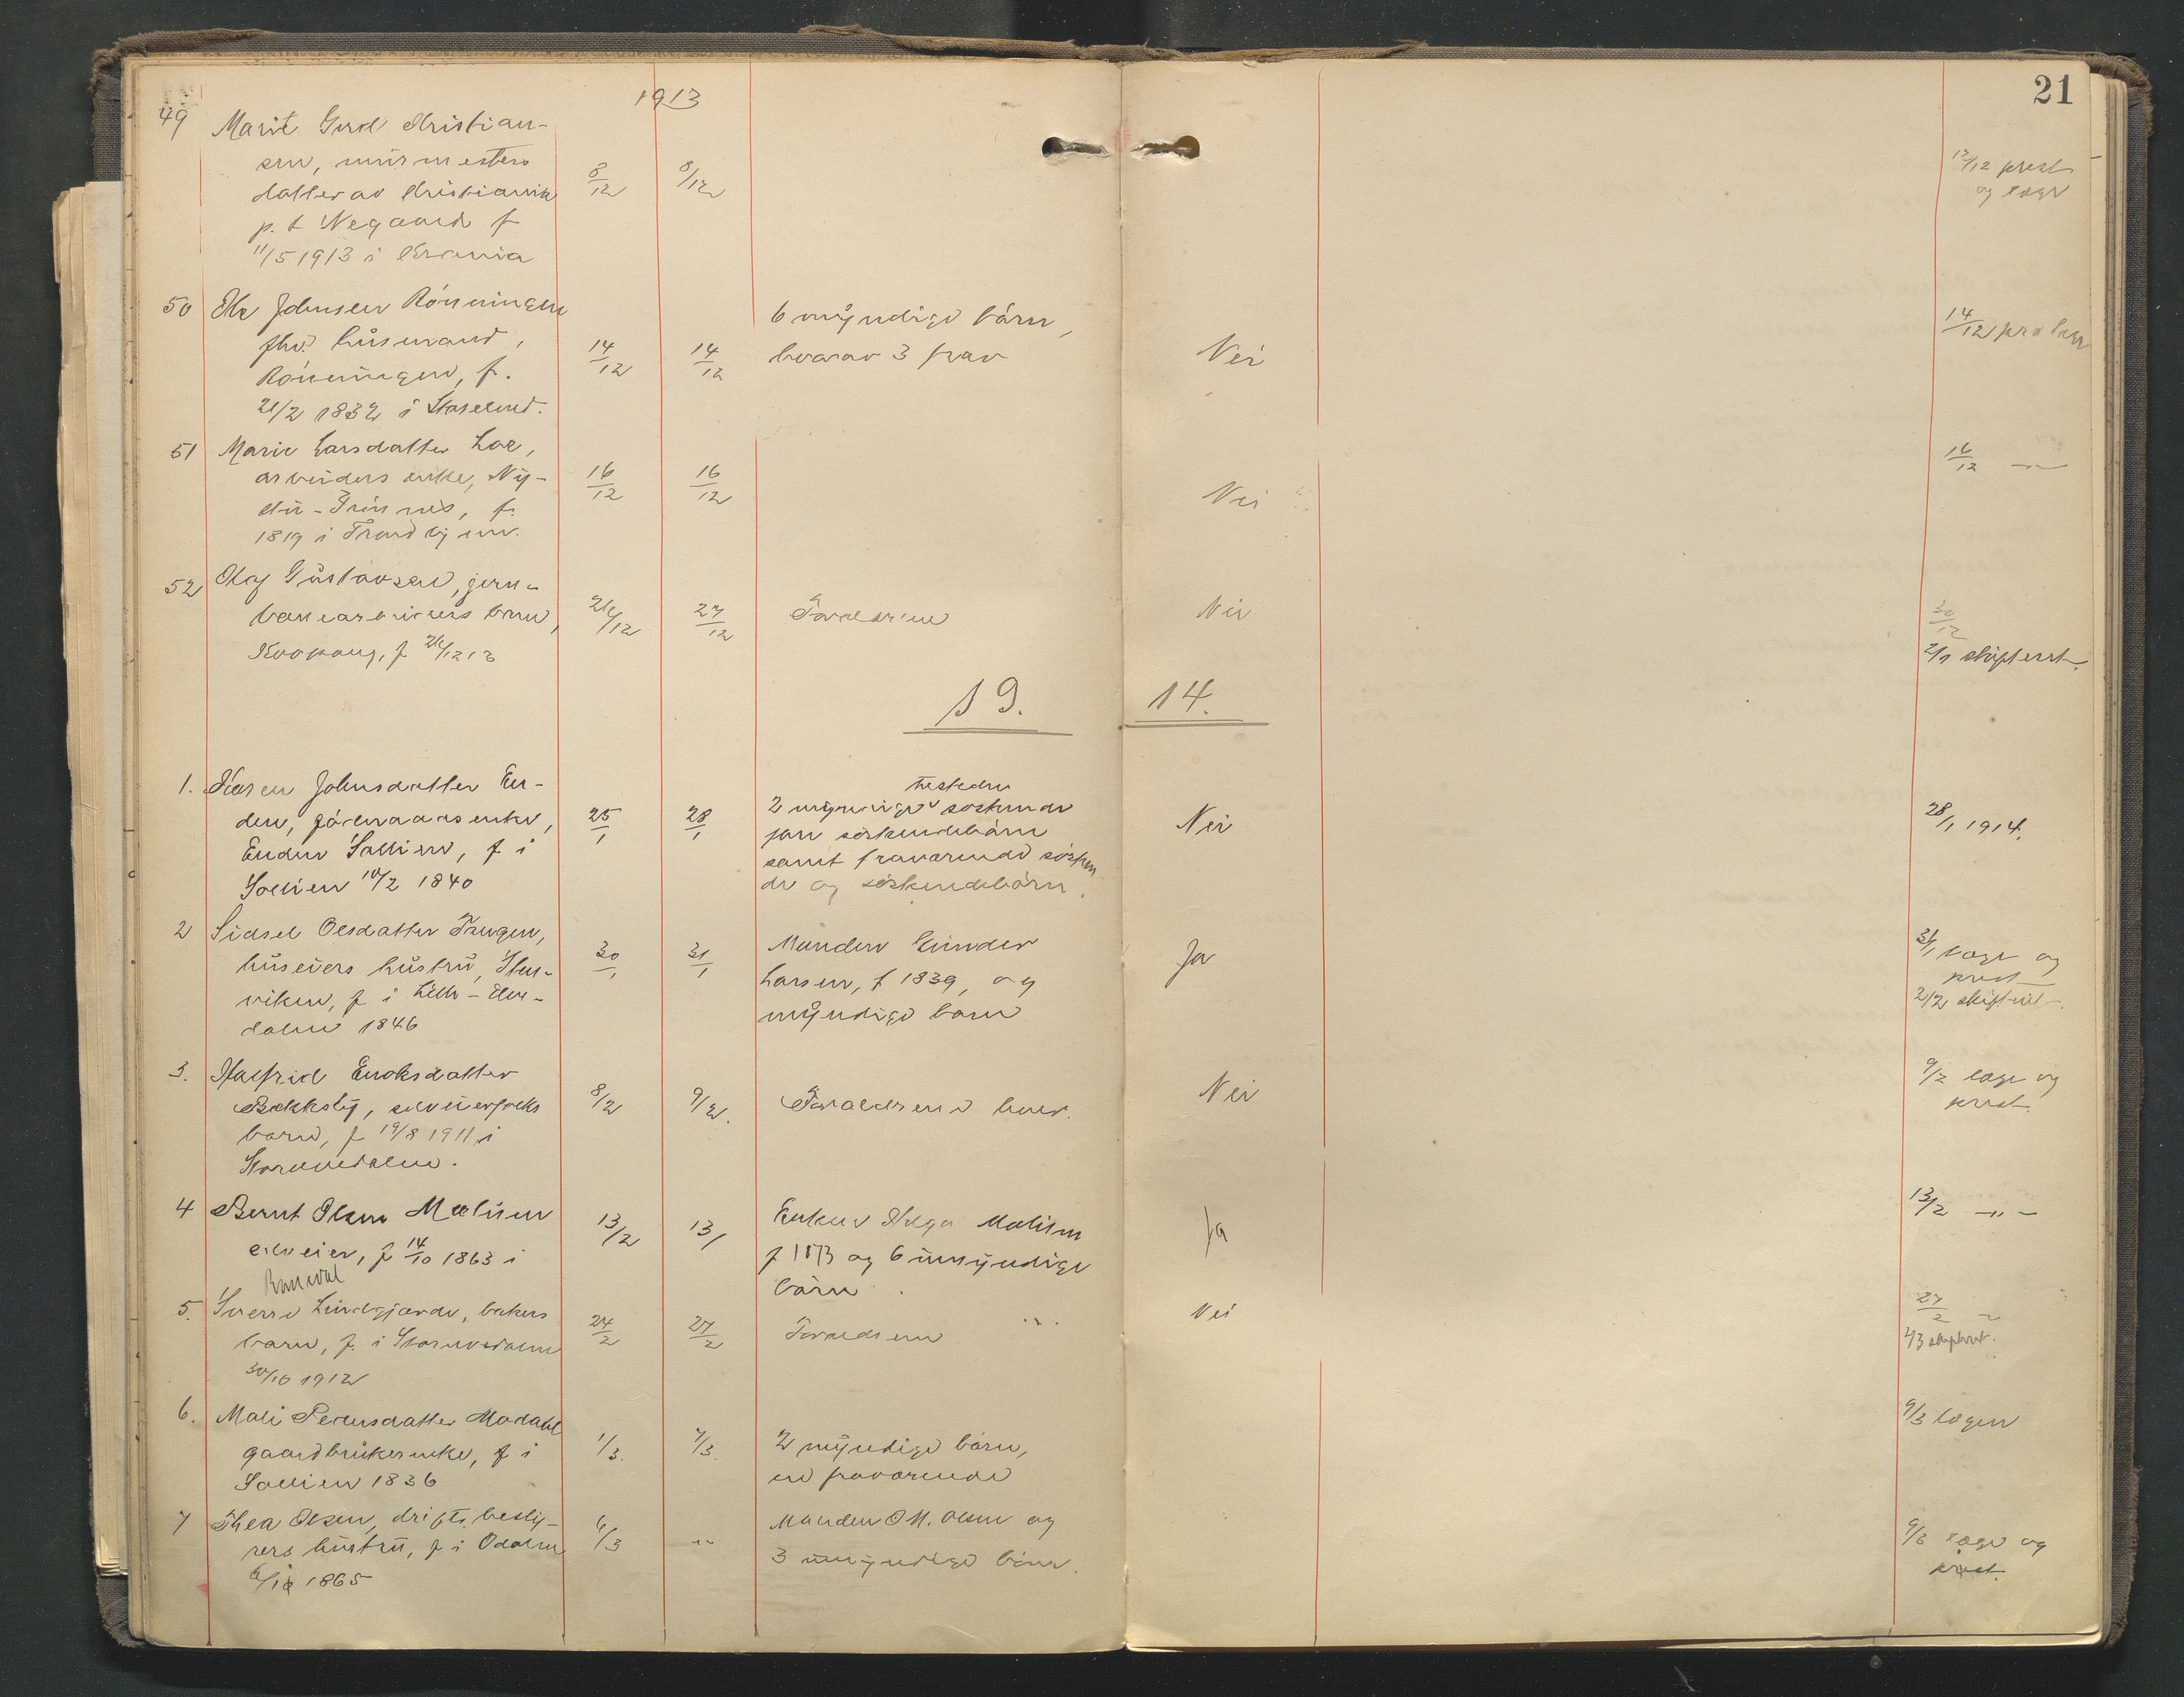 21
1913
49 Marit Gurd Kristian-
sen, murmesters
datter av Kristiania 8/12 8/12
p. t Negaard f
11/5 1913 i Krania
12/12 prest
og læge
50 Ole Johnsen Rönningen
fhv. husmand,
Rönningen, f. 14/12 14/12
21/2 1832 i
6 myndige børn,
hvorav 3 frav
Nei
14/12
51 Marie Larsdatter Loe,
arbeiders enke, Ny- 16/12 16/12
stu-Trönnes, f.
1819 i Trondhjem.
Nei
16/12 -"-
52 Olaf Gustavsen, jern-
banearbeiders barn, 26/12 27/12 Forældrene
Koppang, f 26/12 13
Nei
30/12
2/1 skifteret.
19. 14.
1. Karen Johnsdatter En-
den, gårdmands enke, 25/1 28/1
Enden Sollien, f i
Sollien 10/2 1840
tilstede
2 myndige søskende
søskendebørn
samt fraværende søsken
de og søskendebørn.
Nei
28/1 1914.
2 Sidsel Olsdatter Tangen,
huseiers hustru, Sten- 30/1 31/1
viken, f i Lille-Elve-
dalen 1846
Manden Gunder
Larsen, f 1839, og
myndige barn
Ja
31/1 læge og
prest
2/2 skifteret.
3. Halfrid Enoksdatter
Bækkely, selveierfolks 8/2 9/2.
barn, f 19/8 1911 i
Storelvedalen.
Forældrene lever.
Nei
9/2 læge og
prest.
4 Bernt Olsen Mælisen
selveier, f 14/10 1863 i 13/2 13/
Enken Helga Mælisen
f 1873 og 6 umyndige
børn.
Ja
13/2 -"-
5. Sverre Lindgjærde, bakers
barn, f. i Storelvedalen 24/2 27/2 Forældrene
30/10 1912
Nei
27/2 -
2/3 skifteret.
6. Mali Pedersdatter Modahl
gaardbrukerenke, f i 1/3. 7/3.
Sollien 1836
2 myndige børn,
en fraværende
9/3 lægen
7 Thea Olsen, driftsbesty-
rers hustru, f i Odalen 6/3 -"-
6/10 1865
Manden O M. Olsen og
3 umyndige børn.
9/3 læge og
prest.